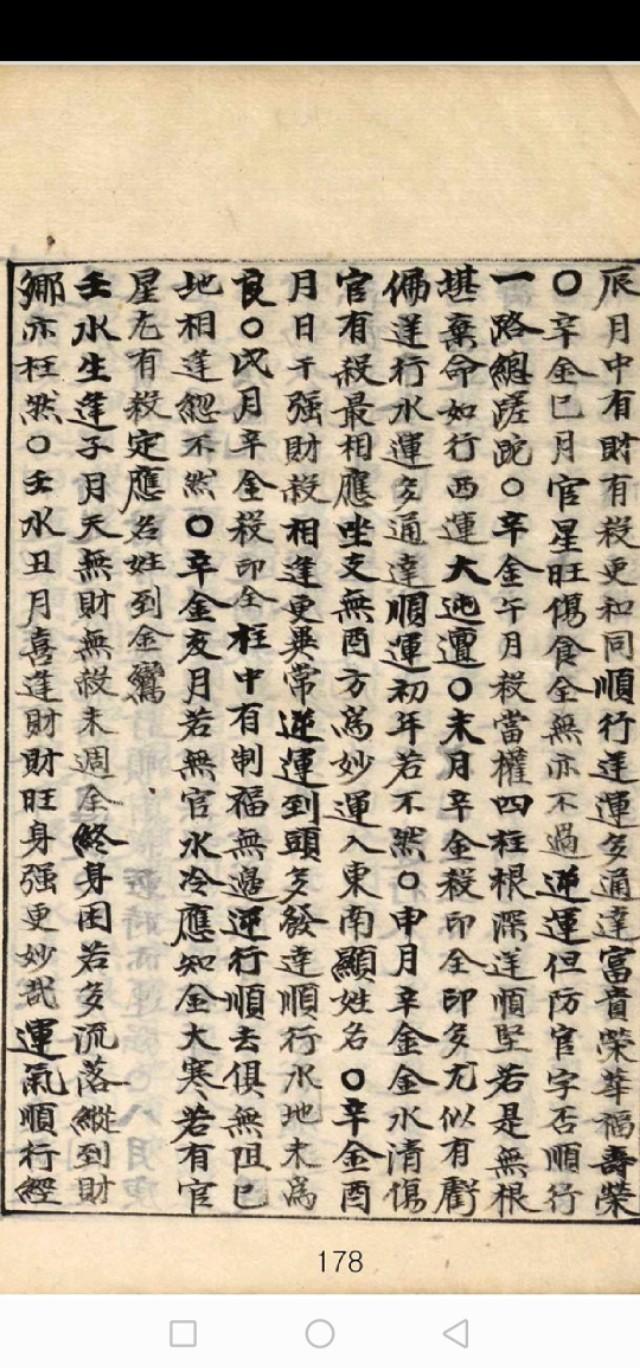 辰月中有財有殺更和同順行逆運多通達富貴榮華福壽榮
〇辛金巳月官星旺傷食全無亦不過逆運但防官字否順行
一路總蹉跎〇辛金午月殺當權四柱根深逆順堅若是無根
堪棄命如行西運大迍邅〇未月辛金殺印全印多尤似有虧
偏逆行水運多通達順運初年若不然〇申月辛金金水清傷
官有殺最相應坐支無酉方為妙運入東南顯姓名〇辛金酉
月日干强財殺相逢更異常逆運到頭多發達順行水地未為
良〇戌月辛金殺印全柱中有制福無邉逆行順去俱無阻巳
地相逢㧾不然〇辛金亥月若無官水冷應知金大寒若有官
星尢有殺定應名姓到金鸞
壬水生逢子月天無財無殺未週全終身困若多流落縱到財
鄉亦枉然〇壬水丑月喜逢財財旺身强更妙哉運氣順行經
178